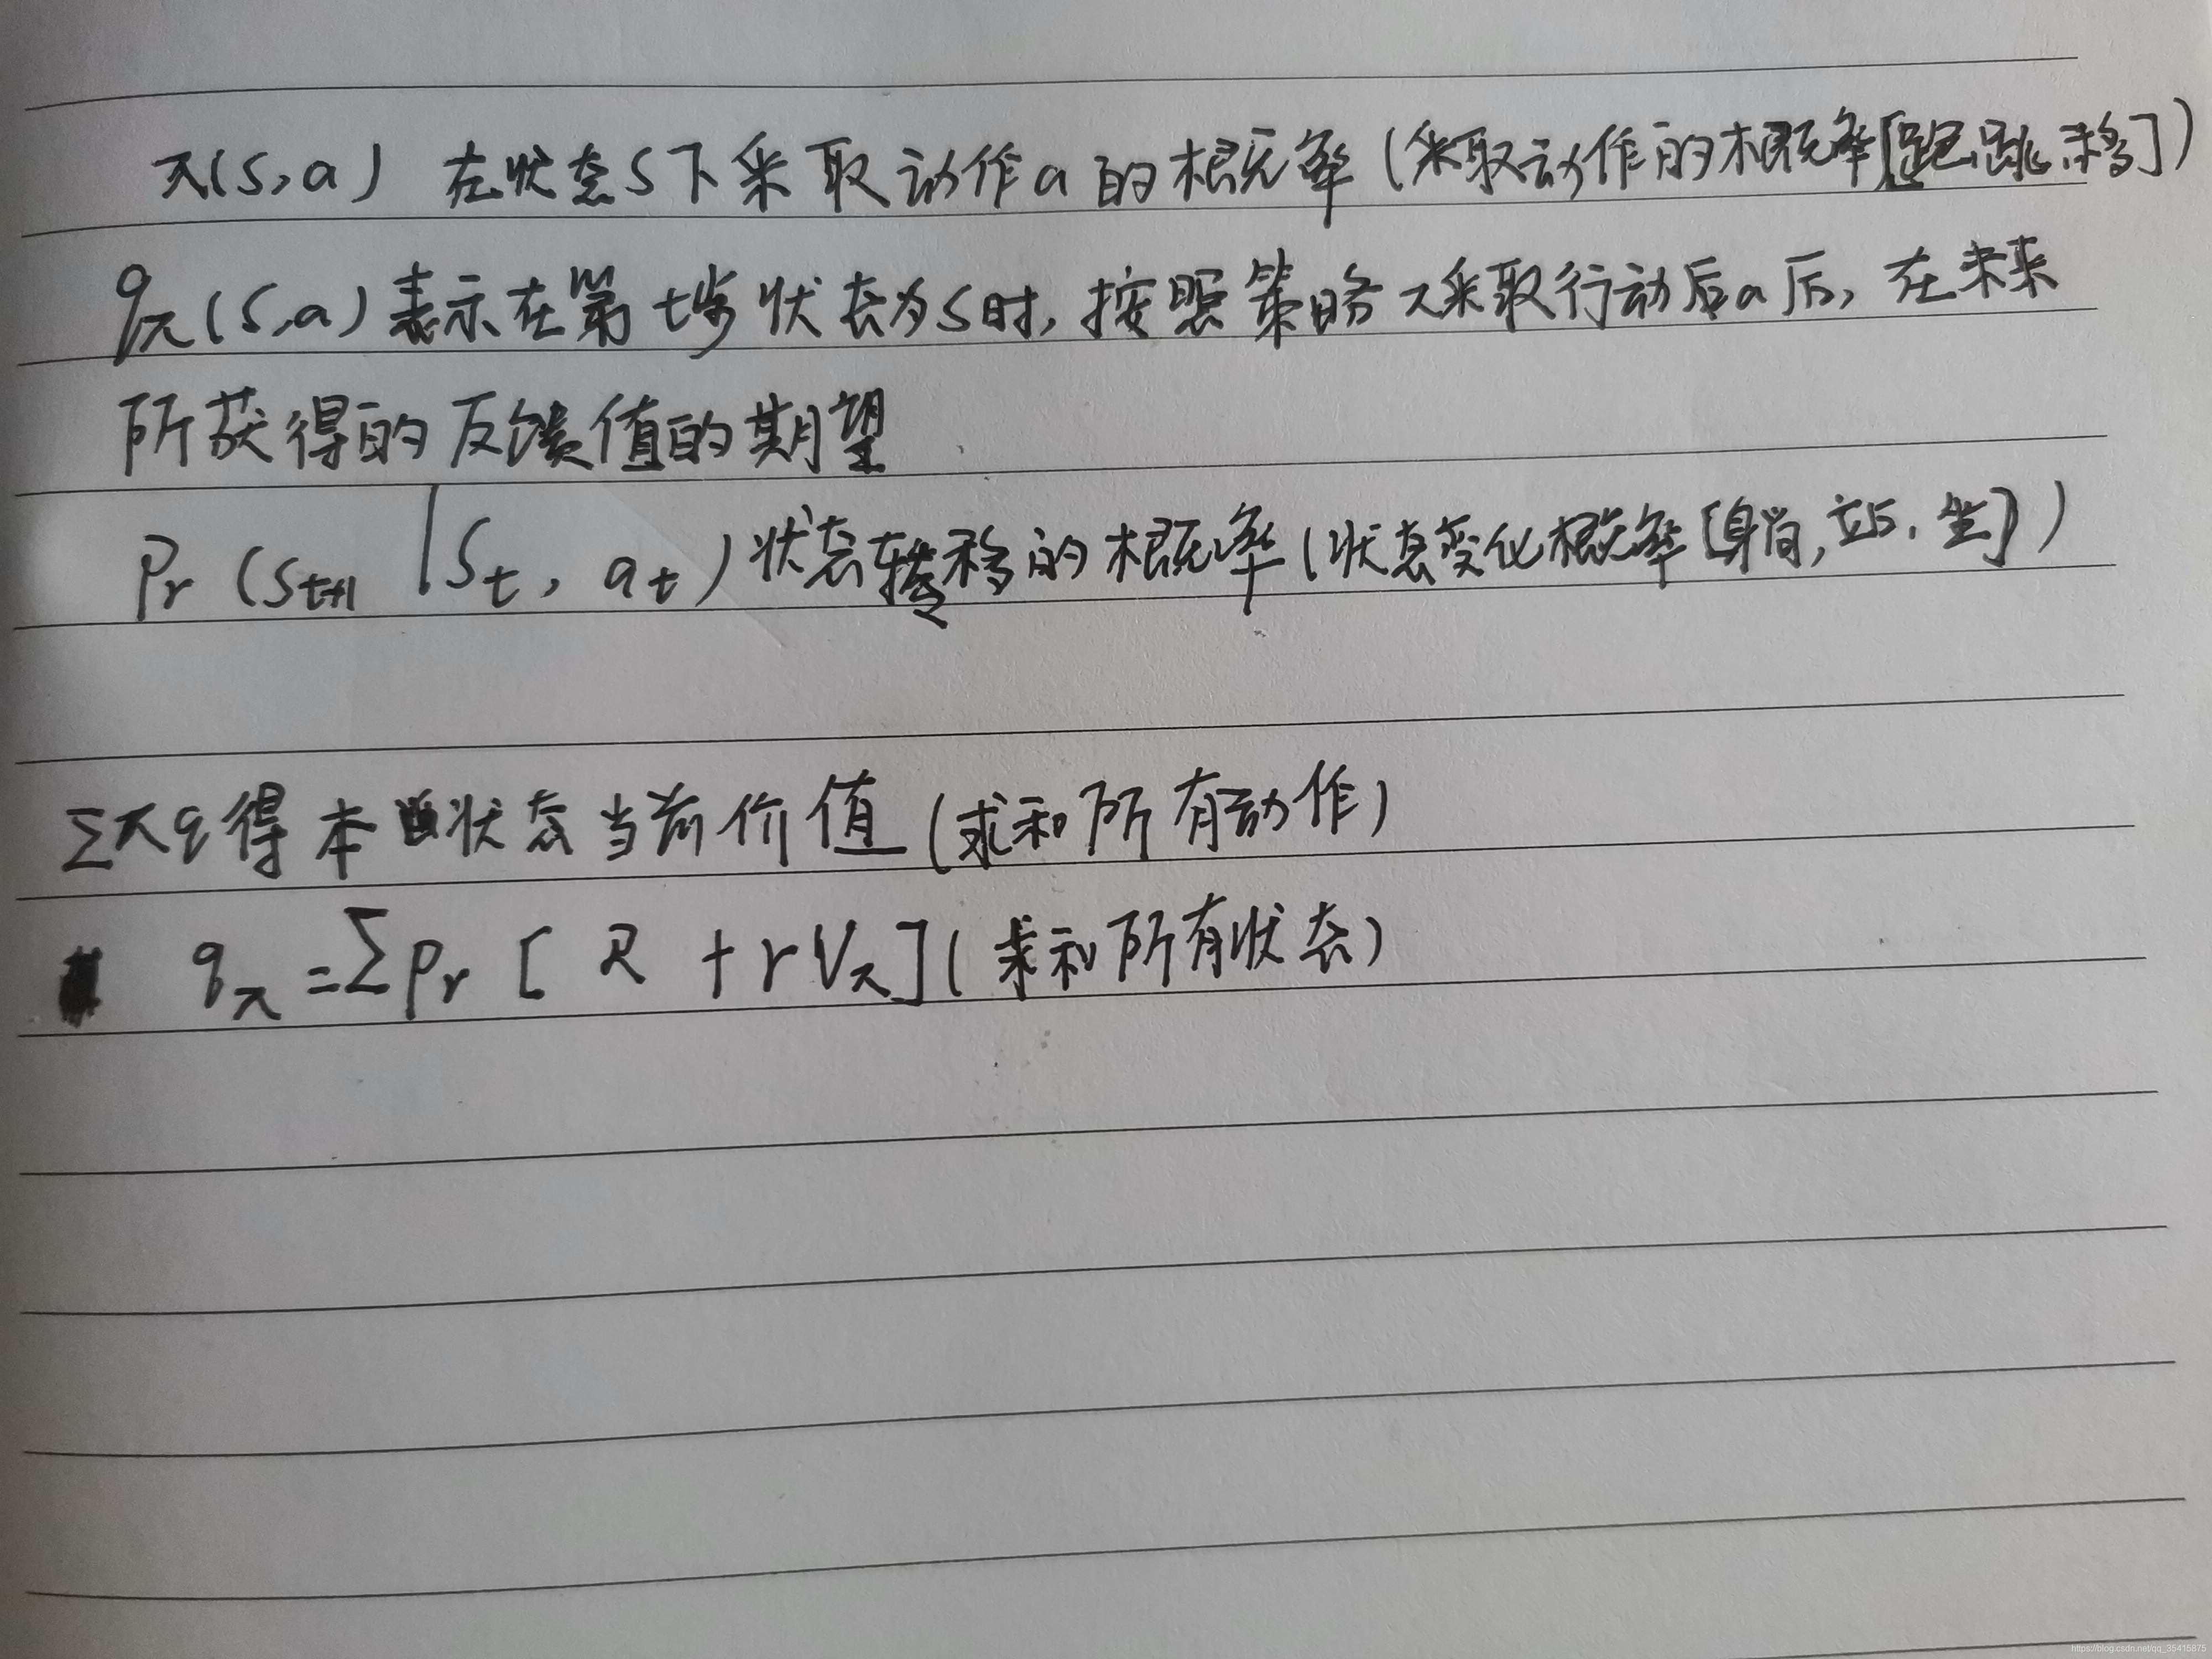 π(s,a) 在状态S下采取动作a的概率(采取动作的概率[跑.跳.移])
qπ(s,a)表示在第t步状态为S时,按照策略π采取行动后a后,在未来
所获得的反馈值的期望
Pr (St+1 | St, at)状态转移的概率(状态变化概率[身尚,立占.坐])
Σπq得本状态当前价值(求和所有动作)
qπ=ΣPr [ R +rVπ](求和所有状态)
https://blog.csdn.net/qq_35415875